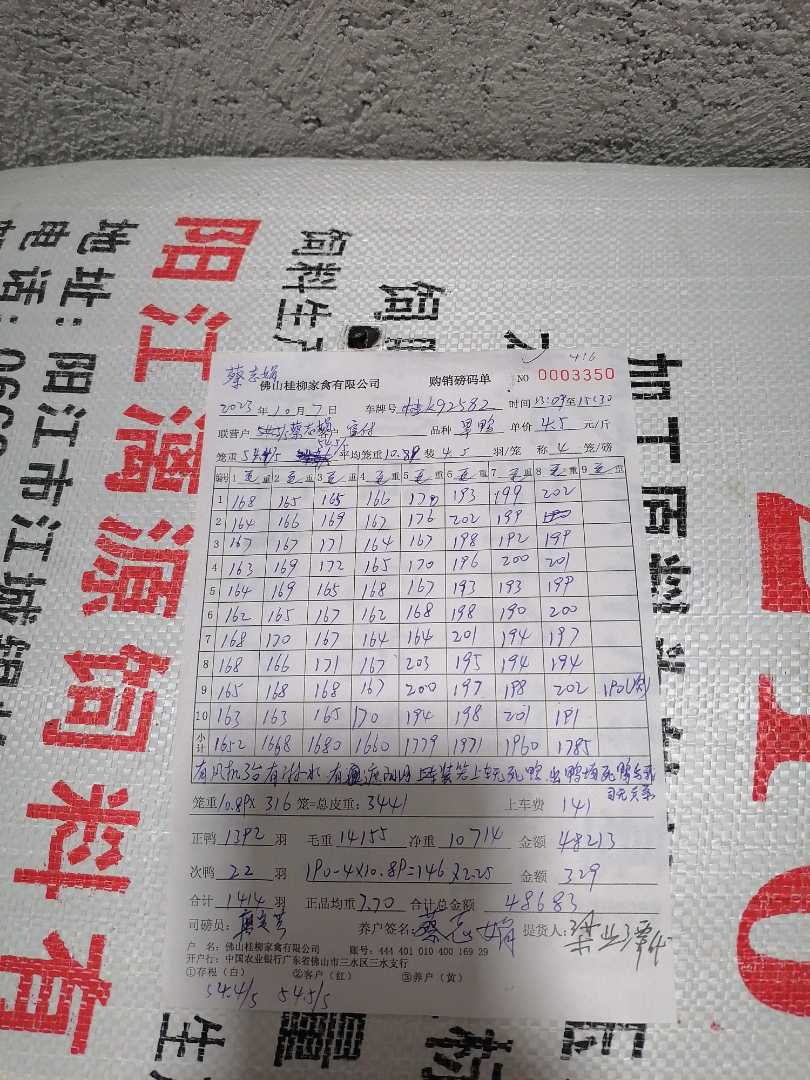 地址：阳江市江城
电话：0662
阳江漓源饲料有
饲料生产
饲料
加工店
210
生
416
蔡志娟
佛山桂柳家禽有限公司 购销磅码单 NO 0003350
2023年10月7日 车牌号 桂K92582 时间 13:09至15:30
联营户 蔡志娟 客户 品种 单鸭 单价 4.5 元/斤
笼重 54.4/5 平均笼重 10.89 装 4.5 羽/笼 称 4 笼/磅
编号 1 毛重 2 毛重 3 毛重 4 毛重 5 毛重 6 毛重 7 毛重 8 毛重 9 毛重
1 168 165 165 166 170 193 199 202
2 164 166 169 167 176 202 199
3 167 167 171 164 167 198 192 199
4 163 169 172 165 170 196 200 201
5 164 169 165 168 167 193 193 199
6 162 165 167 162 168 198 190 200
7 168 170 167 164 164 201 194 197
8 168 166 171 167 203 195 194 194
9 165 168 168 167 200 197 198 202 190(次)
10 163 163 165 170 194 198 201 191
小计 1652 1668 1680 1660 1779 1971 1960 1785
有风机3台有冲水 上车装笼上车无死鸭
笼重 10.89× 316 笼=总皮重：3441 上车费 141
正鸭 1392 羽 毛重 14155 净重 10714 金额 48213
次鸭 22 羽 190-4×10.89=146×2.25 金额 329
合计 1414 羽 正品均重 7.70 合计总金额 48683
司磅员： 养户签名：蔡志娟 提货人：
户 名：佛山桂柳家禽有限公司 账号：444 401 010 400 169 29
开户行：中国农业银行广东省佛山市三水区三水支行
①存根（白） ②客户（红） ③养户（黄）
54.4/5 54.5/5